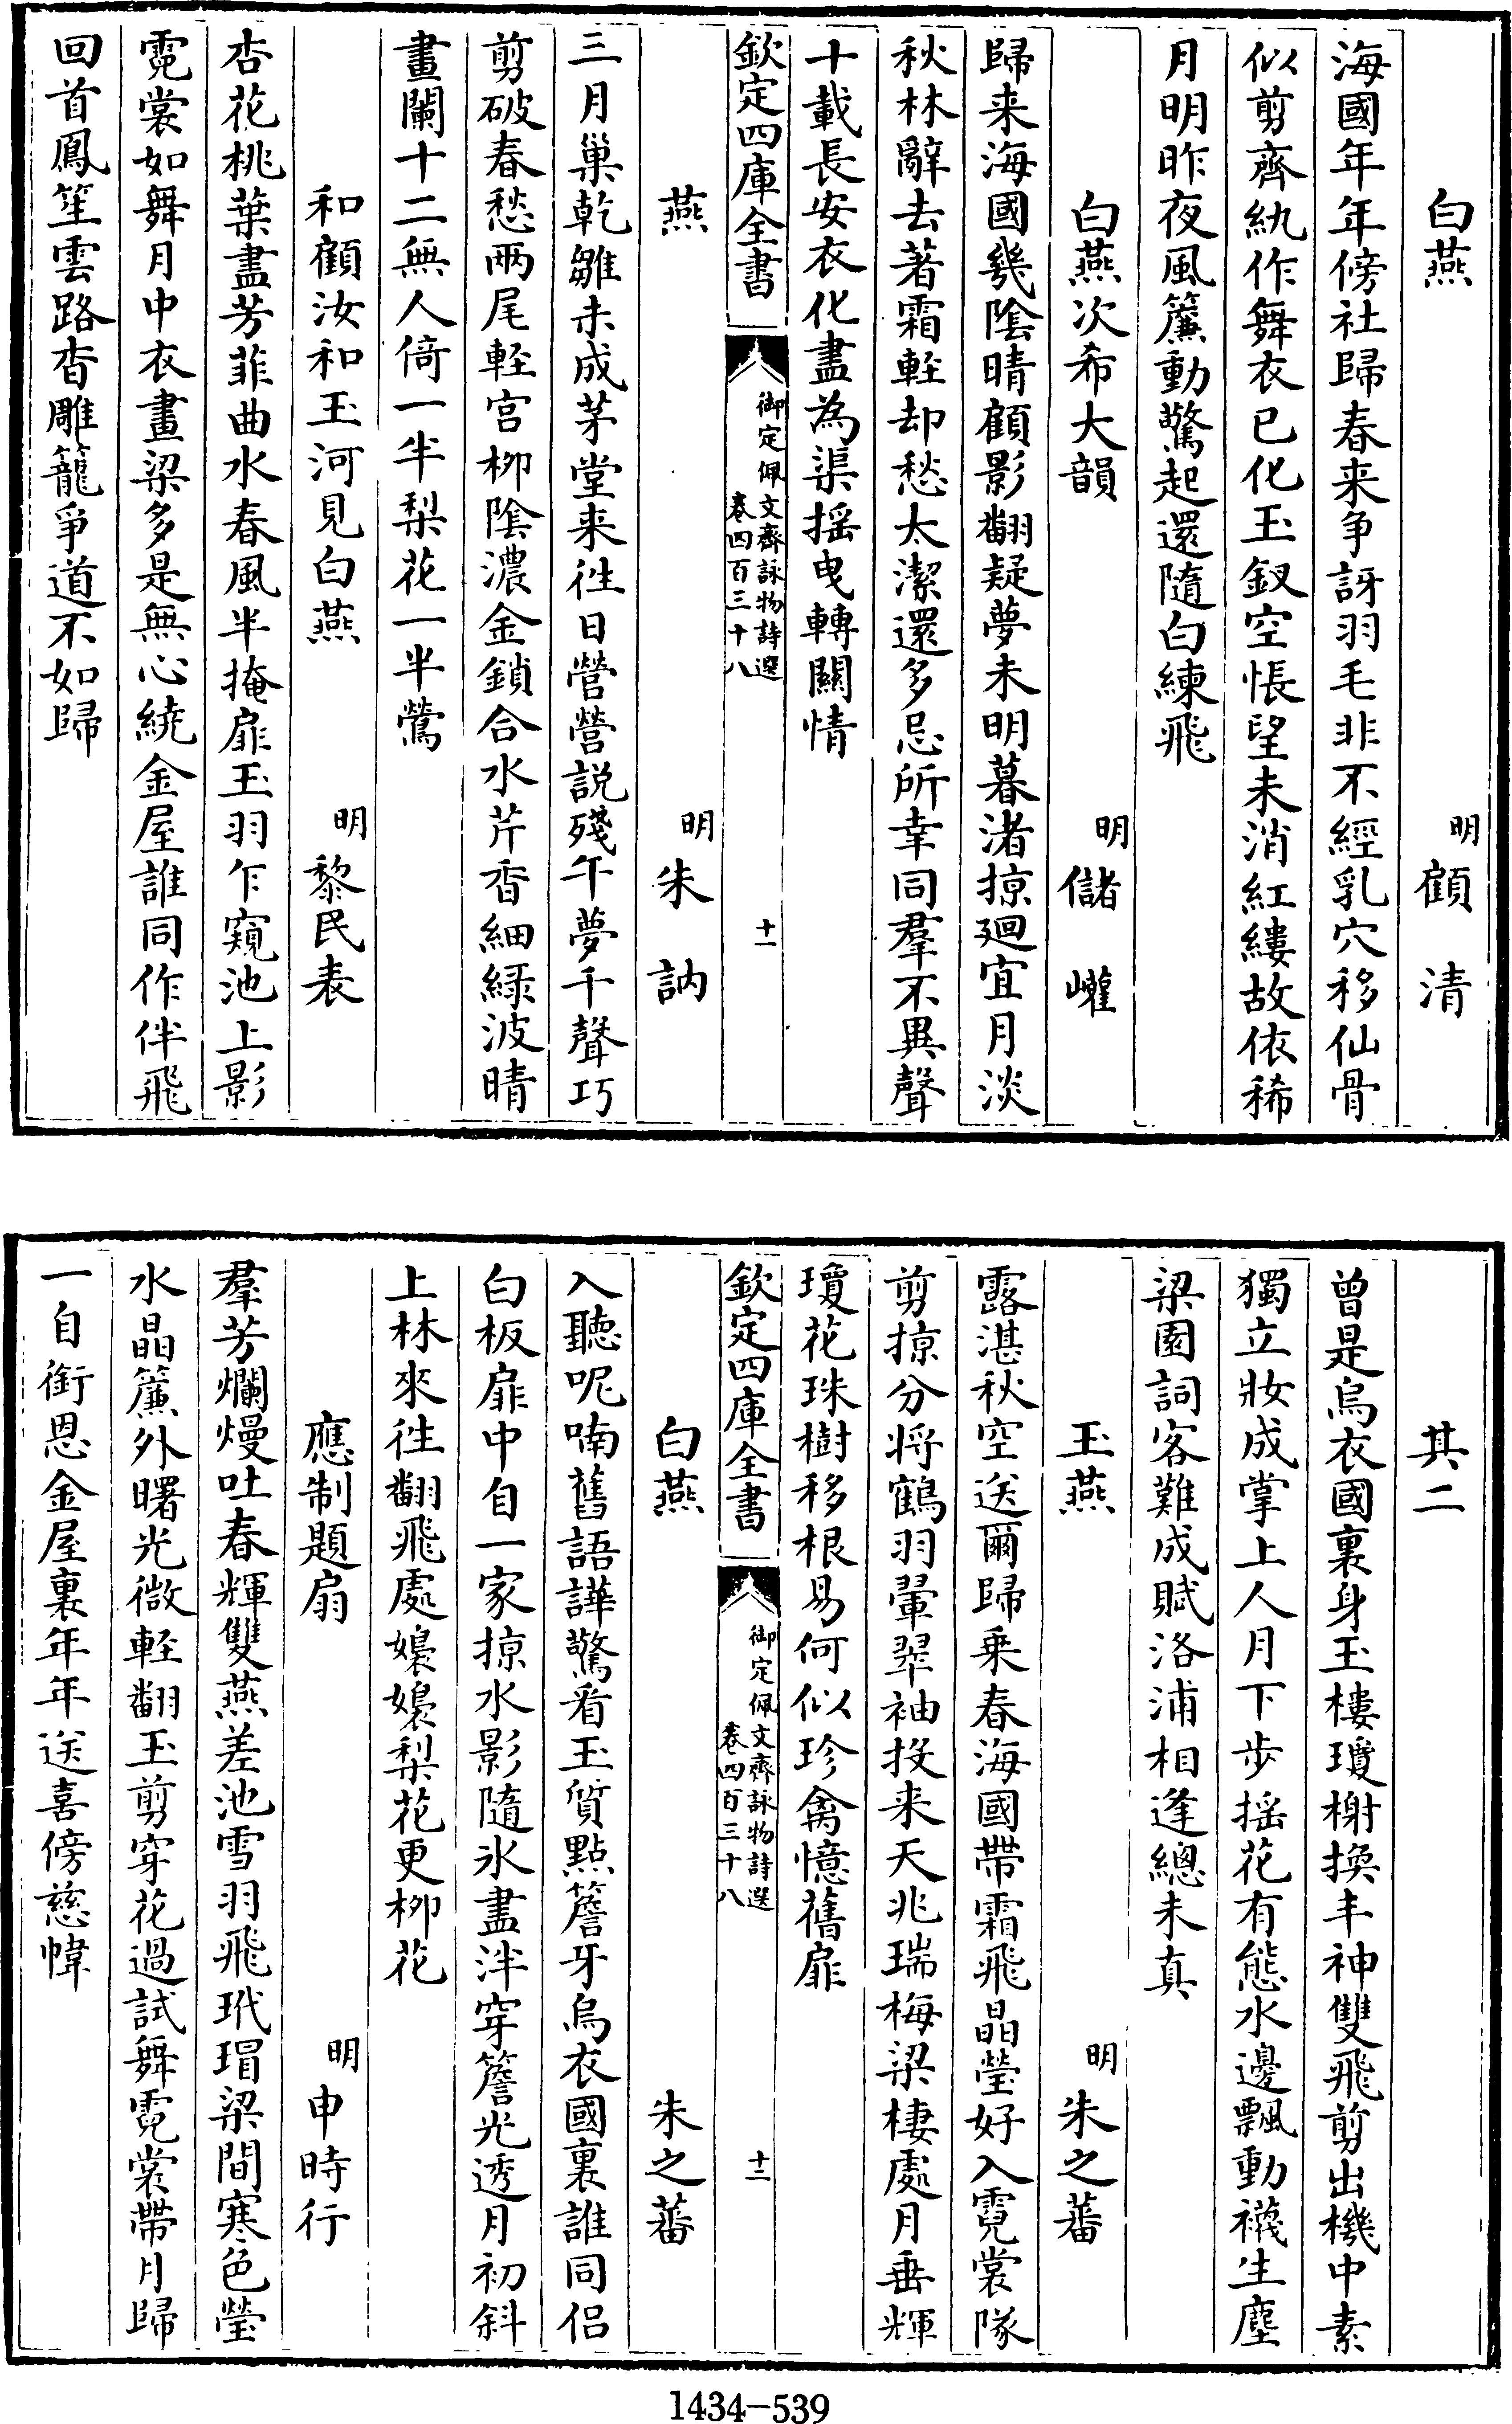 白燕　明顧清
海國年年傍社歸春来争訝羽毛非不經乳穴移仙骨
似剪齊紈作舞衣已化玉釵空悵望未消紅縷故依稀
月明昨夜風簾動驚起還隨白練飛
白燕次希大韻　明儲巏
歸来海國幾陰晴顧影翻疑夢未明暮渚掠廻宜月淡
秋林辭去著霜輕却愁太潔還多忌所幸同羣不異聲
十載長安衣化盡為渠揺曳轉關情
欽定四庫全書　御定佩文齋詠物詩選　卷四百三十八　十一
燕　明朱訥
三月巢乾雛未成茅堂来往日營營説殘午夢千聲巧
剪破春愁兩尾輕宫栁陰濃金鎖合水芹香細緑波晴
畫闌十二無人倚一半梨花一半鶯
和顧汝和玉河見白燕　明黎民表
杏花桃葉盡芳菲曲水春風半掩扉玉羽乍窺池上影
霓裳如舞月中衣畫梁多是無心繞金屋誰同作伴飛
回首鳳笙雲路杳雕籠爭道不如歸
其二
曾是烏衣國裏身玉樓瓊榭換丰神雙飛剪出機中素
獨立妝成掌上人月下步揺花有態水邊飄動襪生塵
梁園詞客難成賦洛浦相逢總未真
玉燕　明朱之蕃
露湛秋空送爾歸乗春海國帶霜飛晶瑩好入霓裳隊
剪掠分将鶴羽翬翠袖投来天兆瑞梅梁棲處月垂輝
瓊花珠樹移根易何似珍禽憶舊扉
欽定四庫全書　御定佩文齋詠物詩選　卷四百三十八　十二
白燕　朱之蕃
入聽呢喃舊語譁驚看玉質點簷牙烏衣國裏誰同侣
白板扉中自一家掠水影隨氷盡泮穿簷光透月初斜
上林來往翻飛處嬝嬝梨花更栁花
應制題扇　明申時行
羣芳爛熳吐春輝雙燕差池雪羽飛玳瑁梁間寒色瑩
水晶簾外曙光微輕翻玉剪穿花過試舞霓裳帶月歸
一自銜恩金屋裏年年送喜傍慈幃
1434-539